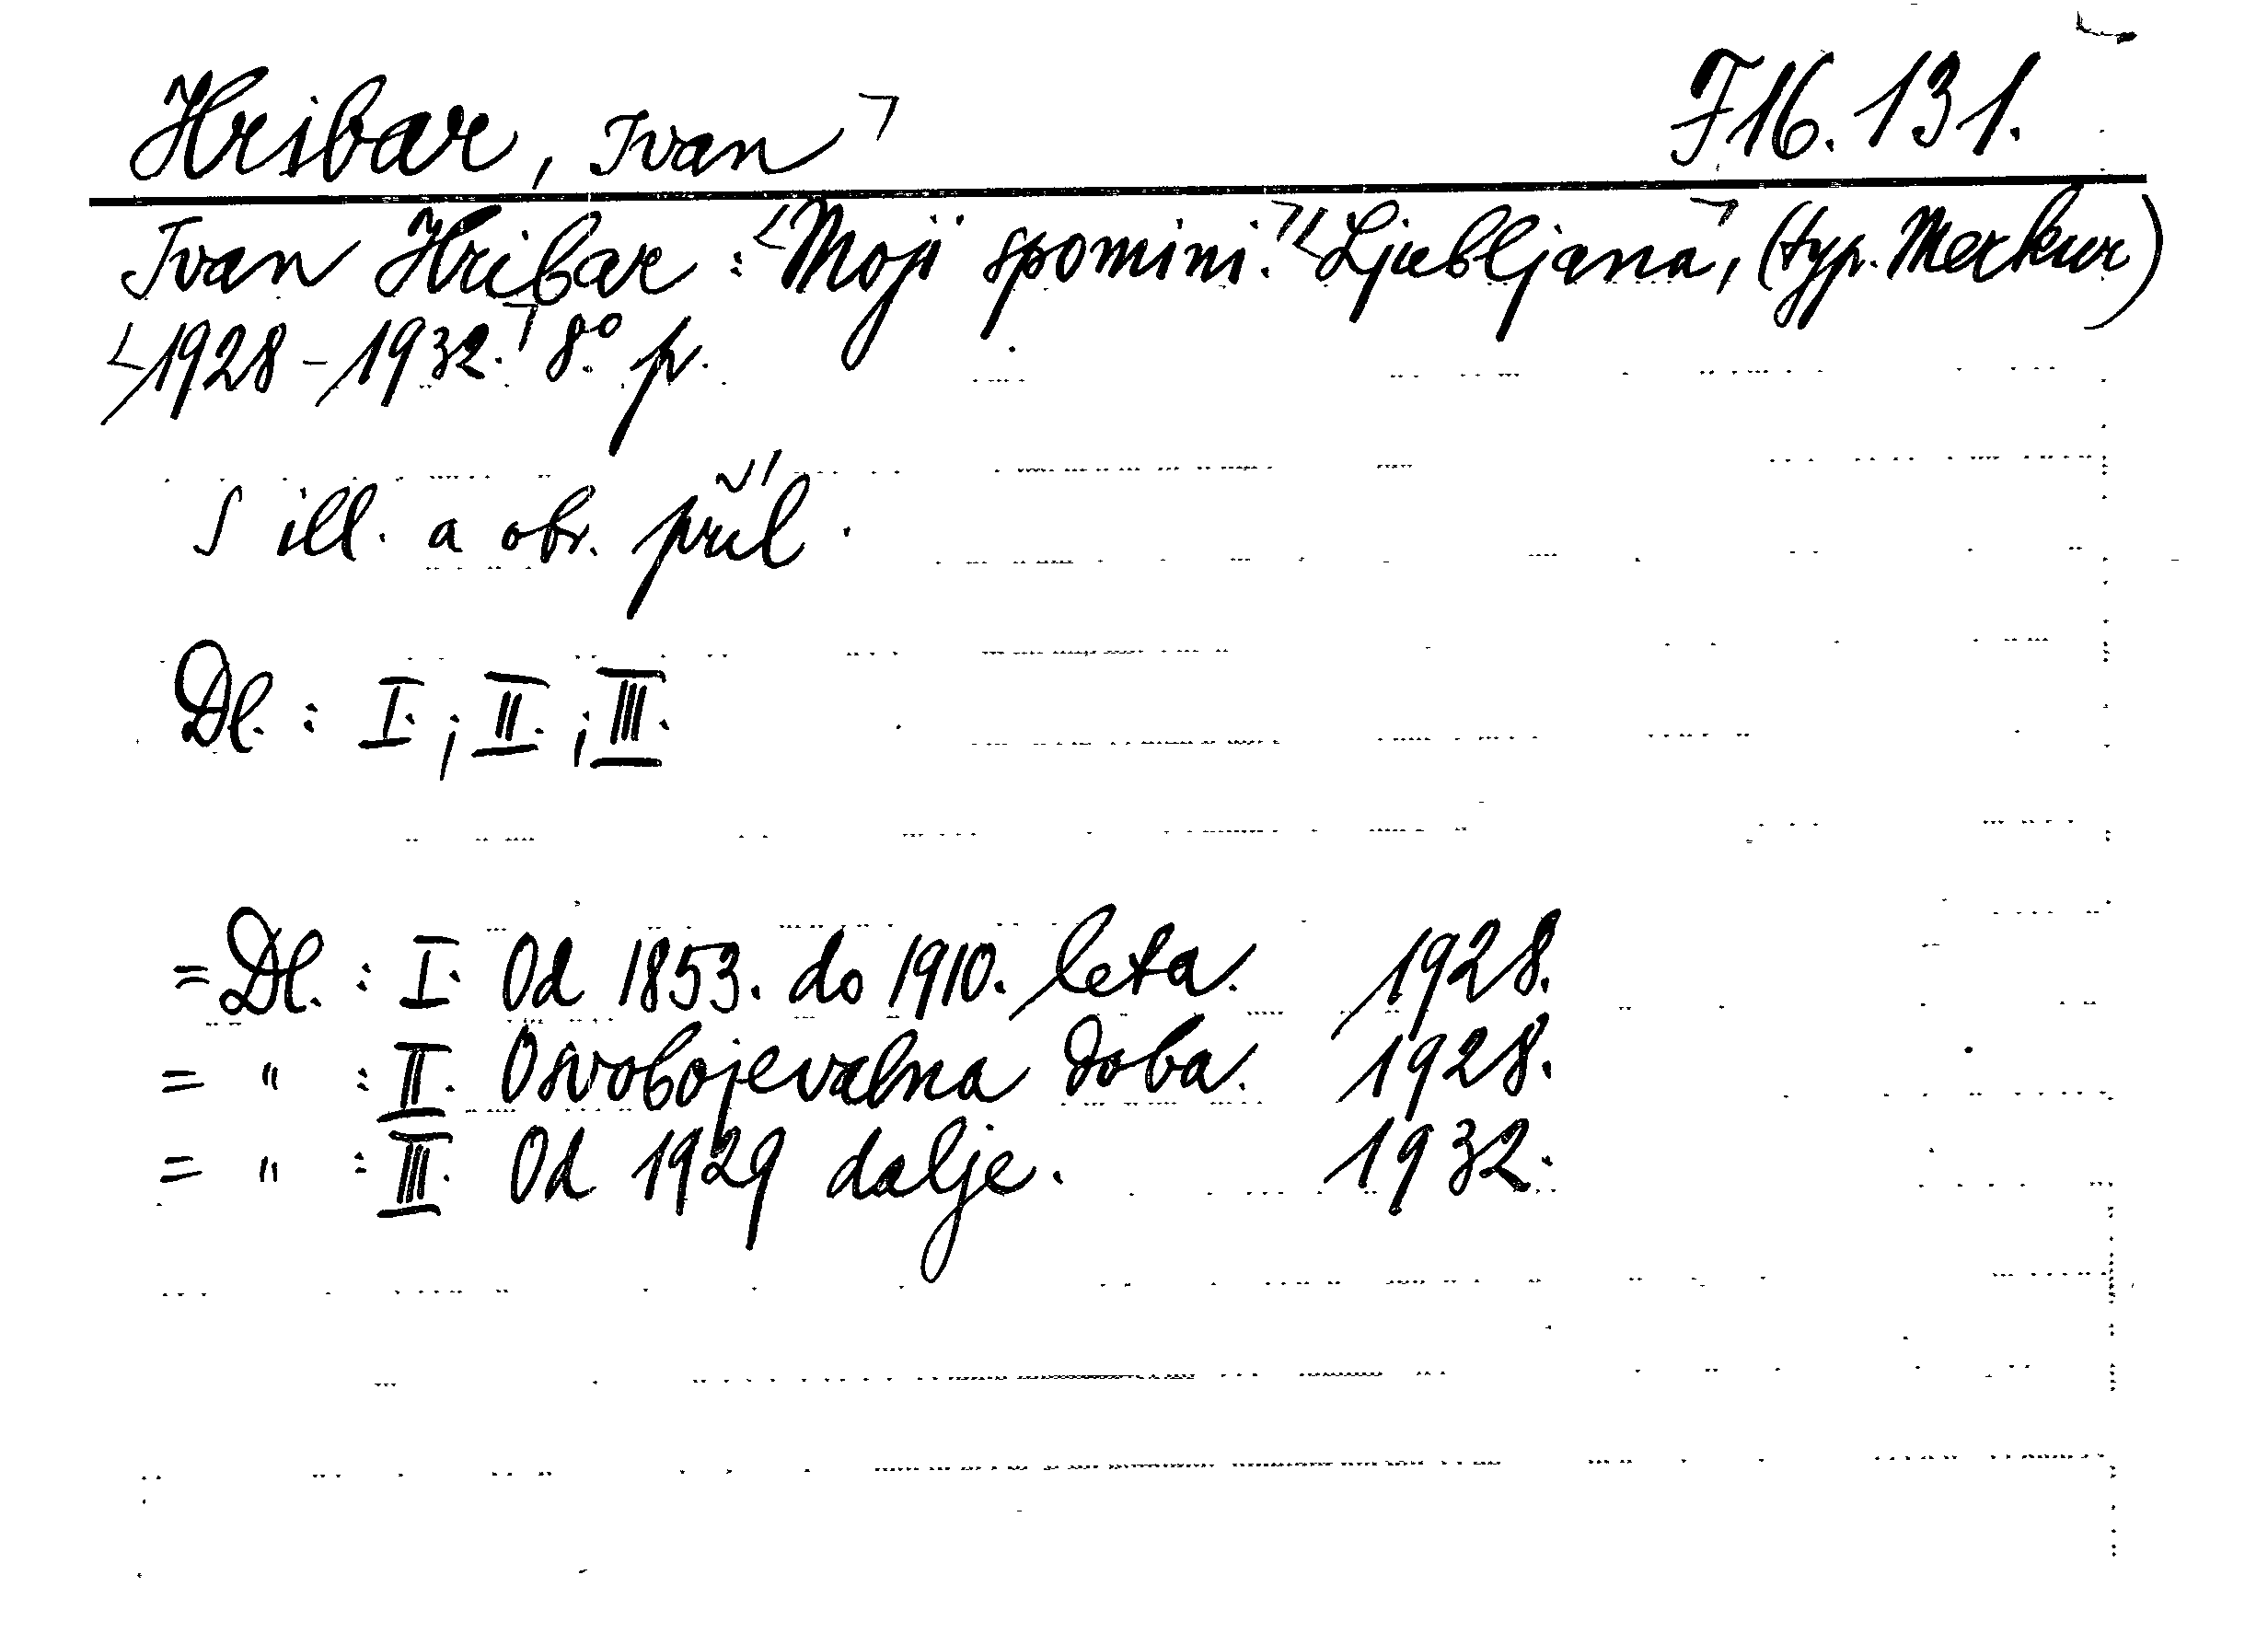 Hribar, Ivan ㄱ F 16. 131.
Ivan Hribar : <Moji spomini.ㄱ <Ljubljanaㄱ, (typ. Merkur)
<1928 - 1932.ㄱ 8.° p.
S ill. a obr. příl.
Dl. : I. ; II. ; III.
= Dl. : I. Od 1853. do 1910. leta. 1928.
= " : II. Osvobojevalna doba. 1928.
= " : III. Od 1929 dalje. 1932.